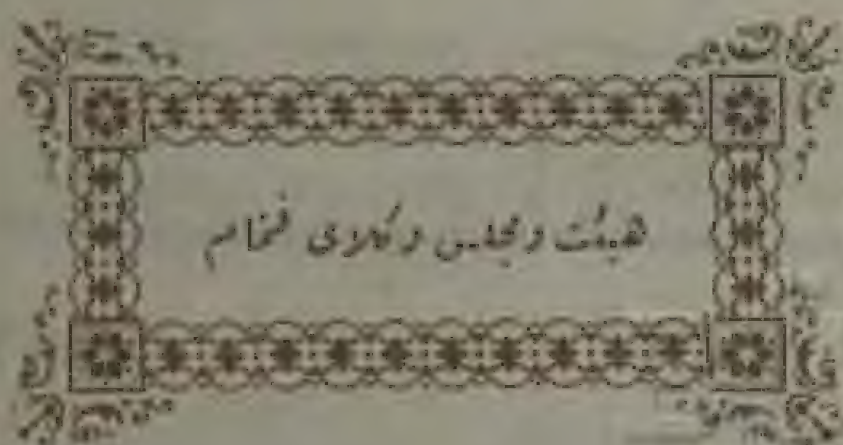 هیئت و مجلس وکلای فخام